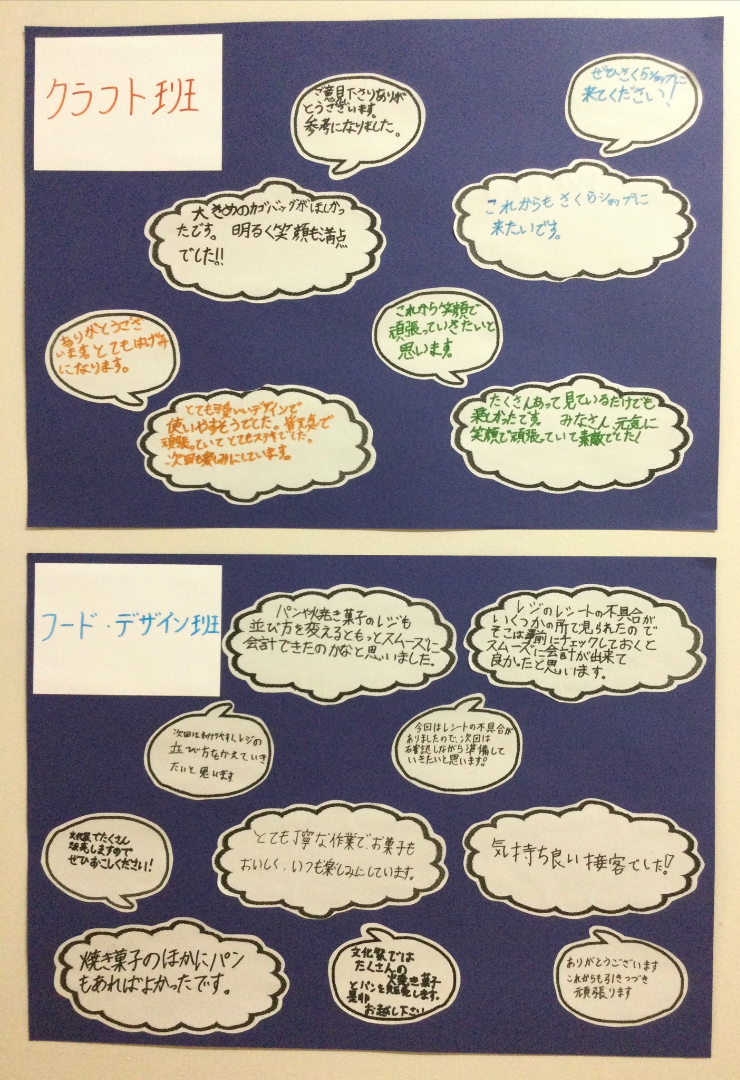 クラフト班
ご意見下さりありが
とうございます。
参考になりました。
ぜひさくらショップに
来てください!
大きめのカゴバッグがほしかっ
たです。明るく笑顔も満点
でした!!
これからもさくらショップに
来たいです。
ありがとうござ
います とてもはげみ
になります。
これから笑顔で
頑張っていきたいと
思います。
とても可愛いデザインで
使いやすそうでした。皆笑顔で
頑張っていてとてもステキでした。
次回も楽しみにしています。
たくさんあって見ているだけでも
楽しかったです。みなさん元気に
笑顔で頑張っていて素敵でした!
フード・デザイン班
パンや焼き菓子のレジも
並び方を変えるともっとスムーズに
会計できたのかなと思いました。
レジのレシートの不具合が
いくつかの所で見られたので
そこは事前にチェックしておくと
スムーズに会計が出来て
良かったと思います。
次回はわかりやすくレジの
並び方をかえていき
たいと思います
今回はレシートの不具合が
ありましたので、次回は
確認しながら準備して
いきたいと思います!
文化祭でたくさん
販売しますので
ぜひおこしください!
とても丁寧な作業で、お菓子も
おいしく、いつも楽しみにしています。
気持ち良い接客でした!
焼き菓子のほかにパン
もあればよかったです。
文化祭では
たくさんの
焼き菓子
とパンを販売します。
是非
お越し下さい
ありがとうございます
これからも引きつづき
頑張ります